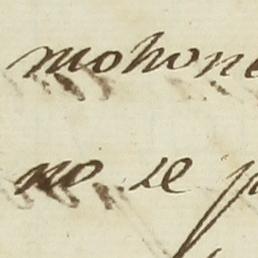 mohone
no se p